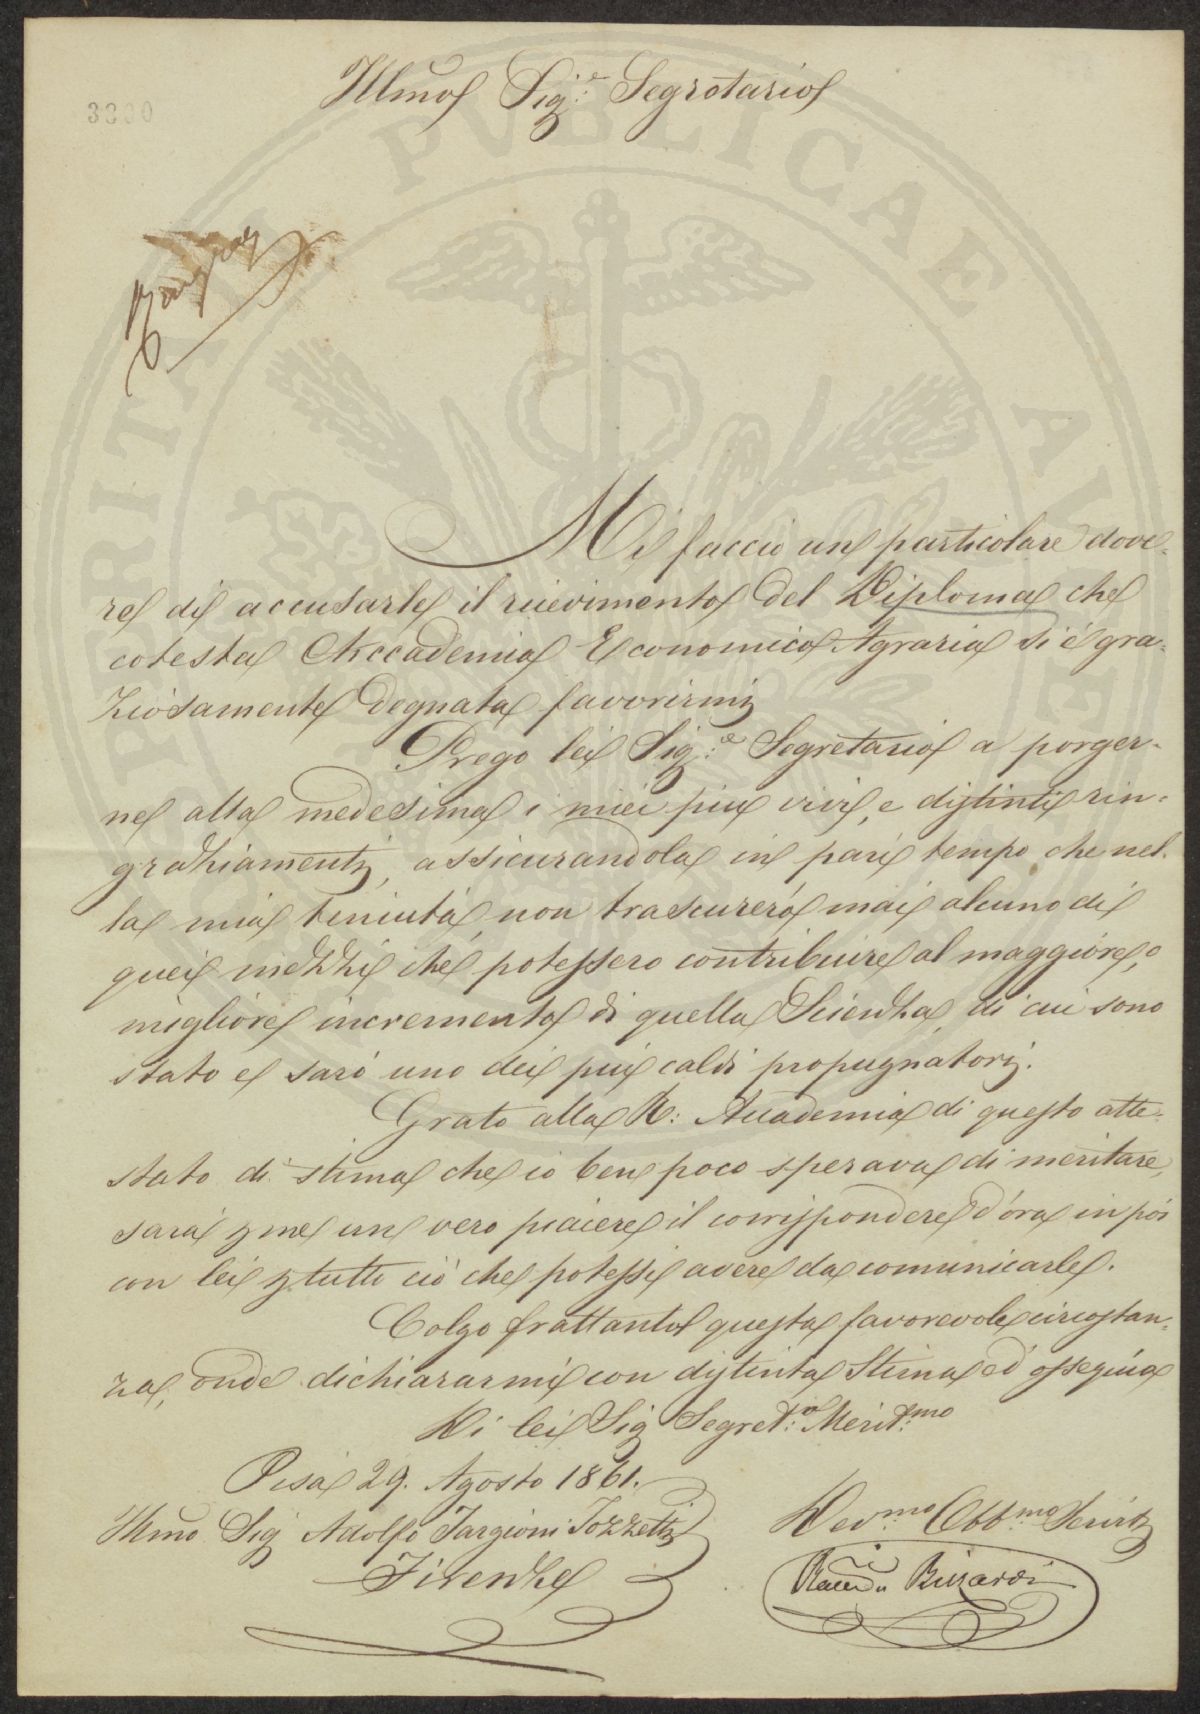 3330
Illmo Sig.e Segretario
Mi faccio un particolare dove-
re di accusarle il ricevimento del Diploma che
cotesta Accademia Economico Agraria si è gra-
ziosamente degnata favorirmi
Prego lei Sig.e Segretario a porger-
ne alla medesima i miei più vivi, e distinti rin-
graziamenti, assicurandola in pari tempo che nel-
la mia tenuta, non trascurerò mai alcuno di
quei mezzi che potessero contribuire al maggiore, o
migliore incremento di quella Scienza, di cui sono
stato e sarò uno dei più caldi propugnatori.
Grato alla R: Accademia di questo atte-
stato di stima che io ben poco sperava di meritare,
sarà p me un vero piacere il corrispondere d'ora in poi
con lei p tutto ciò che potessi avere da comunicarle.
Colgo frattanto questa favorevole circostan-
za, onde dichiararmi con distinta Stima ed ossequio
Di lei Sig Segret:o Merit:mo
Pisa 29. Agosto 1861.
Illmo Sig Adolfo Targioni Tozzetti
Firenze
Dev:mo Obb:mo Servit
PVBLICAE